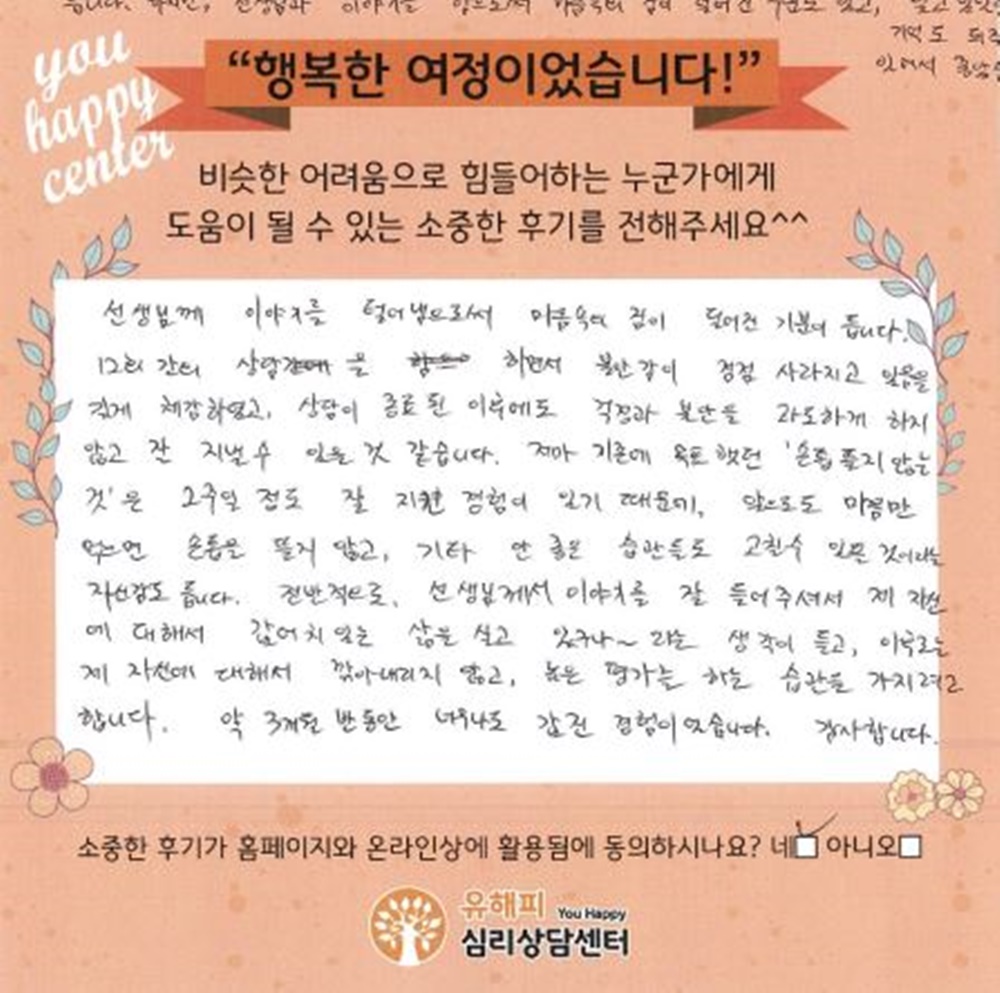 습니다. 하지만, 선생님과 이야기를 함으로써 마음속의 짐이 덜어진 부분도 있고,
기억도 되
있어서 좋았
you
happy
center
“행복한 여정이었습니다!”
비슷한 어려움으로 힘들어하는 누군가에게
도움이 될 수 있는 소중한 후기를 전해주세요^^
선생님께 이야기를 털어냄으로써 마음속의 짐이 덜어진 기분이 듭니다.
12회 간의 상담을 하면서 불안감이 점점 사라지고 있음을
크게 체감하였고, 상담이 종료된 이후에도 걱정과 불안을 과도하게 하지
않고 잘 지낼 수 있을 것 같습니다. 저마 기존에 목표했던 '손톱 뜯지 않는
것'은 2주일 정도 잘 지킨 경험이 있기 때문에, 앞으로도 마음만
먹으면 손톱을 뜯지 않고, 기타 안 좋은 습관들도 고칠 수 있을 것이라는
자신감도 듭니다. 전반적으로, 선생님께서 이야기를 잘 들어주셔서 제 자신
에 대해서 값어치 있는 삶을 살고 있구나~ 라는 생각이 들고, 이후로는
제 자신에 대해서 깎아내리지 않고, 높은 평가를 하는 습관을 가지려고
합니다. 약 3개월 반 동안 너무나도 값진 경험이었습니다. 감사합니다.
소중한 후기가 홈페이지와 온라인상에 활용됨에 동의하시나요? 네 아니오
유해피 You Happy
심리상담센터